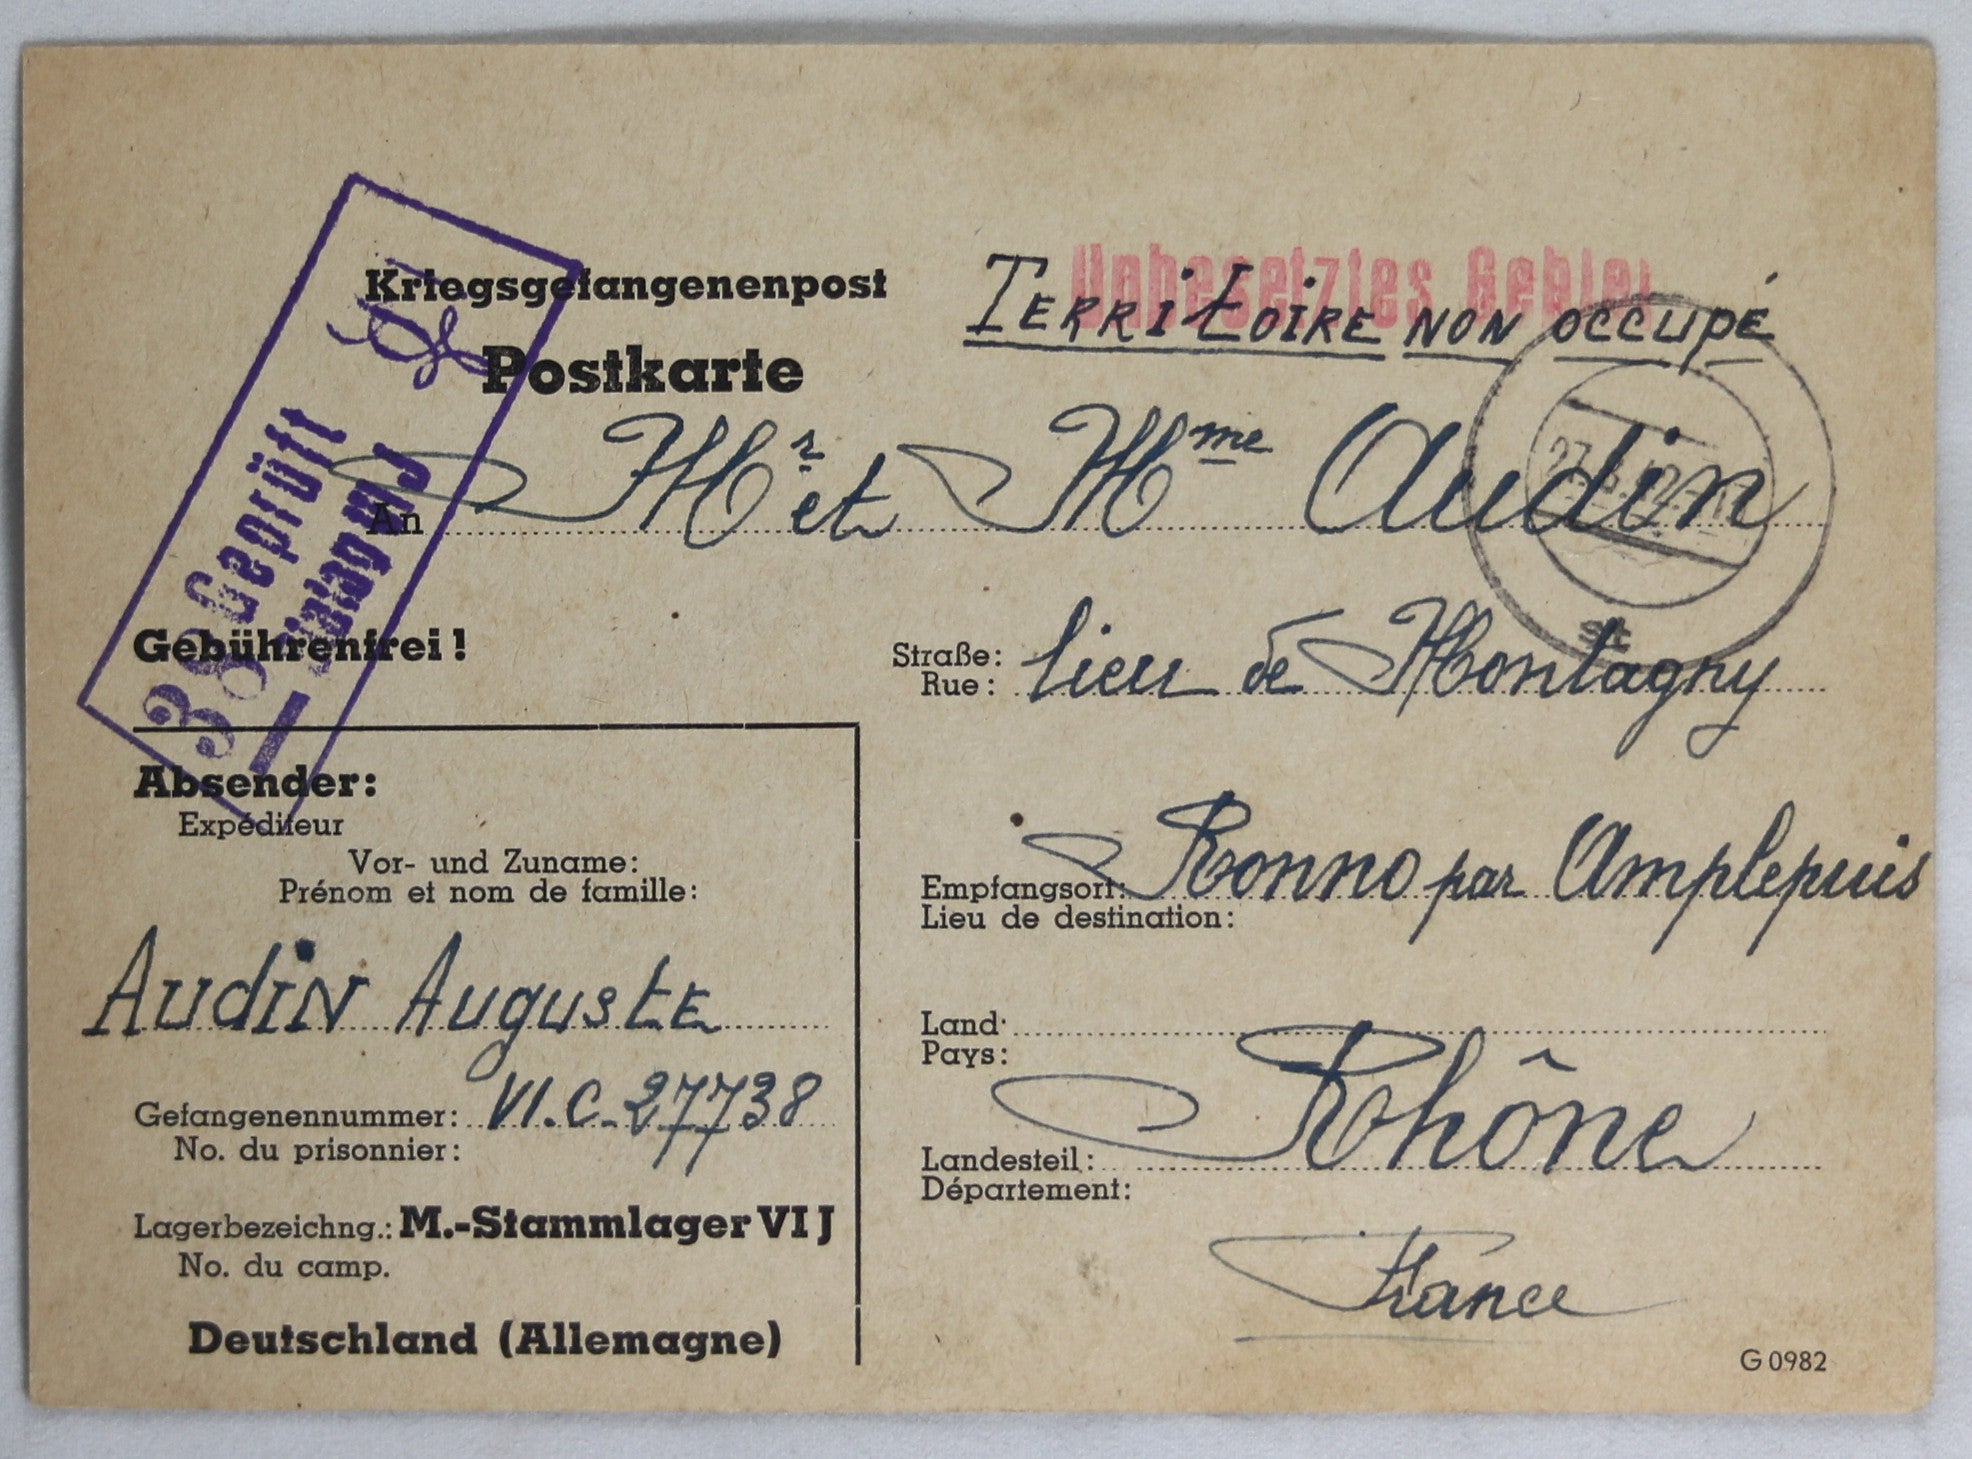 Unbesetztes Gebiet
Territoire non occupé
Kriegsgefangenenpost
Postkarte
38 Geprüft
Stalag VI J
An Mr et Mme Audin
Gebührenfrei!
Straße: lieu de Montagny
Rue:
Empfangsort: Ronno par Amplepuis
Lieu de destination:
Land:
Pays:
Landesteil: Rhône
Département:
France
Absender:
Expéditeur
Vor- und Zuname:
Prénom et nom de famille:
Audin Auguste
Gefangenennummer: VI.C. 27738
No. du prisonnier:
Lagerbezeichng.: M.-Stammlager VI J
No. du camp.
Deutschland (Allemagne)
G 0982